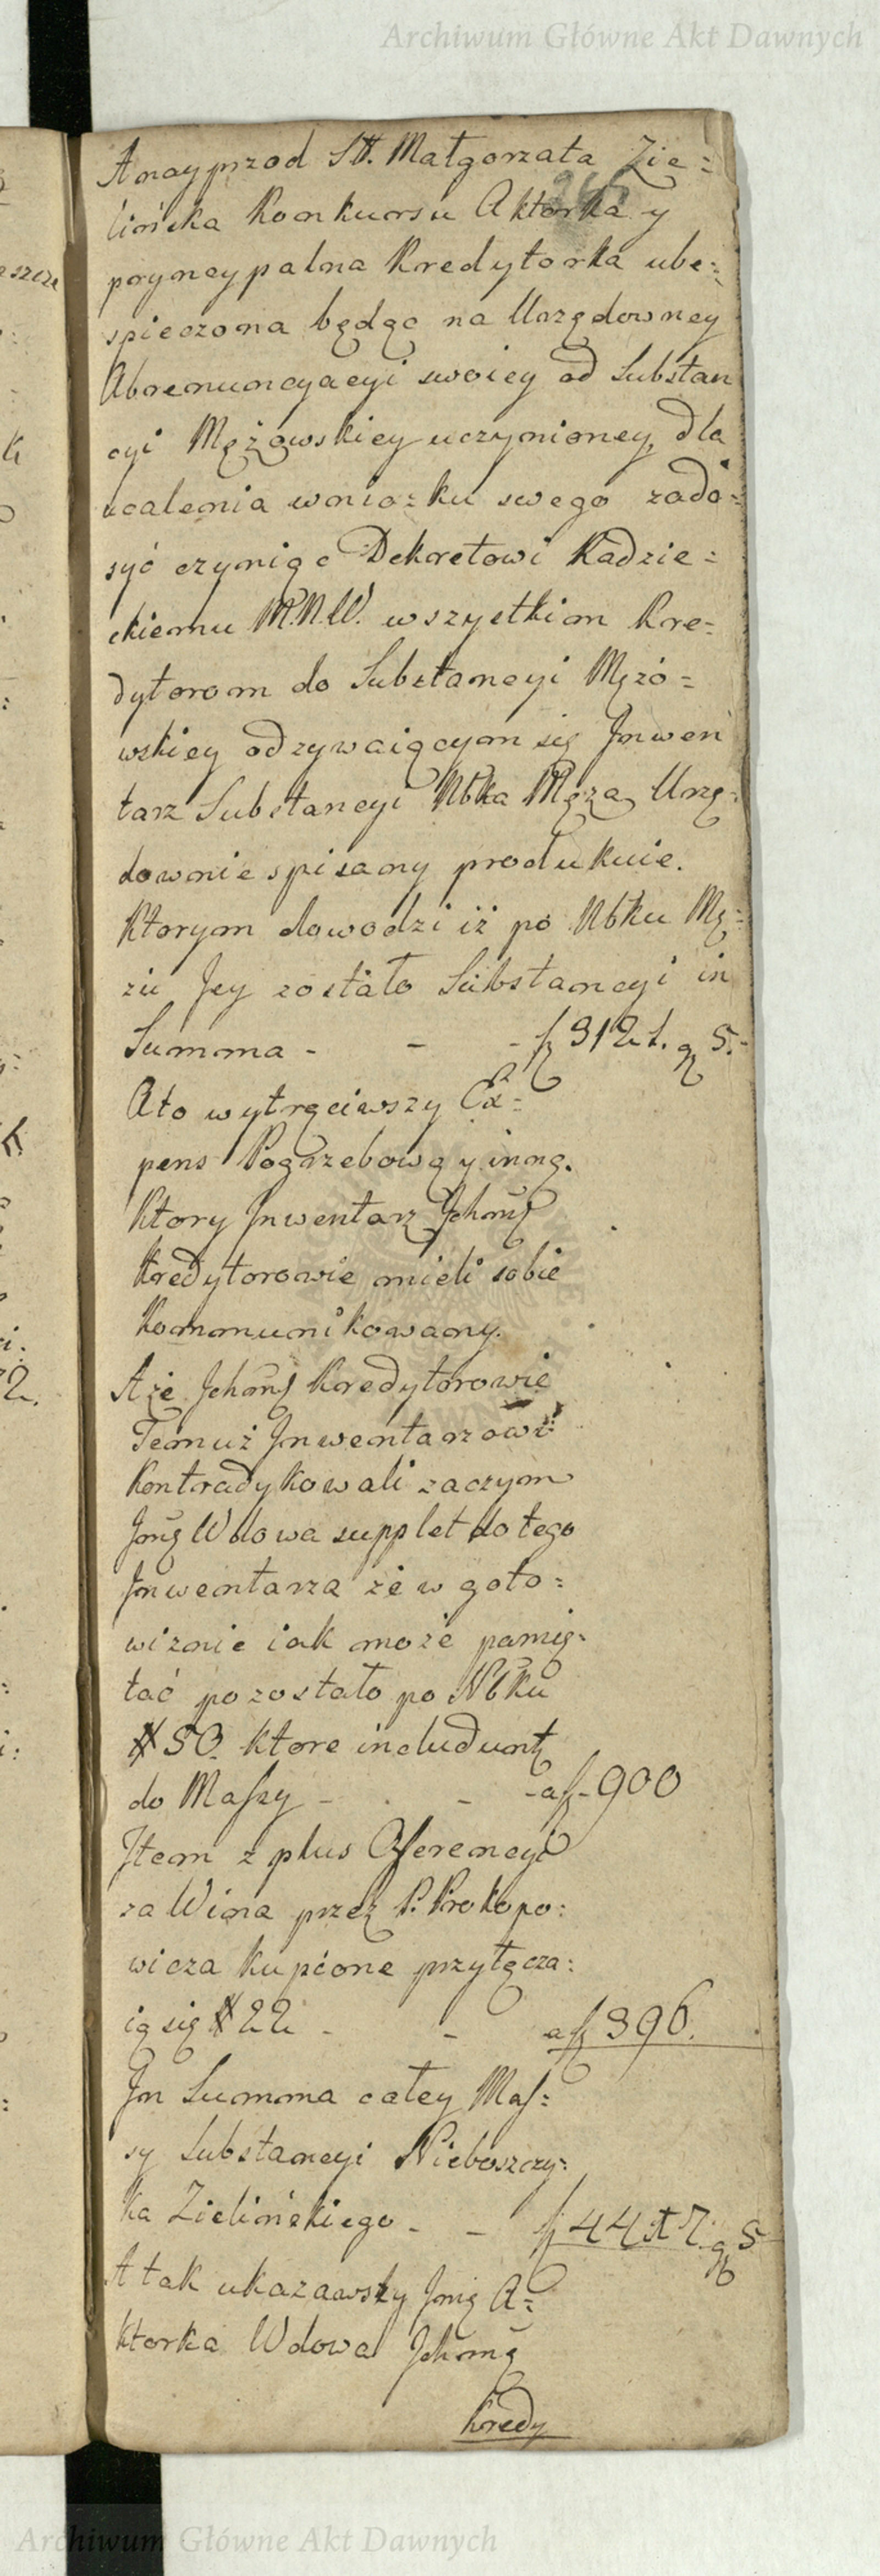 Archiwum Główne Akt Dawnych
A nayprzod Sł. Małgorzata Zie=
lińska Konkursu Aktorka y
pryncypalna Kredytorka ube=
spieczona będąc na Urzędowney
Abrenuncyacyi swoiey od Substan
cyi Mężowskiey uczynioney, dla
ucalenia wniozku swego zado=
syć czyniąc Dekretowi Radzie=
ckiemu M.N.W. wszystkim Kre=
dytorom do Substancyi Mężo=
wskiey odzywaiącym się Inwen
tarz Substancyi Nbka Męża Urzę=
downie spisany produkuie.
Ktorym dowodzi iż po Nbku Mę=
żu Jey zostało Substancyi in
Summa - - - f 3121. g 5.-
A to wytrąciwszy Ex=
pens Pogrzebową y inną.
Ktory Inwentarz Jchmć
Kredytorowie mieli sobie
Kommunikowany.
A że Jchmć Kredytorowie
Temuż Inwentarzowi
Kontradykowali zaczym
Jmć Wdowa supplet do tego
Inwentarza że w goto=
wiznie iak może pamię=
tać pozostało po Nbku
# 50. ktore includunt
do Massy - - - a f - 900
Item z plus Oferencyi
za Wina przez P. Prokopo=
wicza kupione przyłącza=
ią się # 22 - - a f 396.
In Summa całey Mas=
sy Substancyi Nieboszczy=
ka Zielińskiego - - f 4417. g 5
A tak ukazawszy Jmć A=
ktorka Wdowa Jchmć
Kredy
Archiwum Główne Akt Dawnych